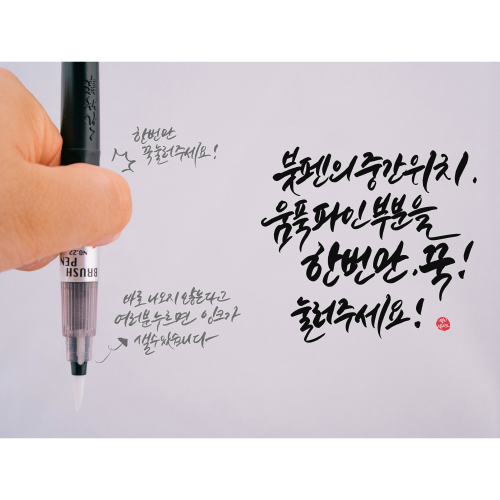 한번만
꾹눌러주세요!
붓펜의 중간위치,
움푹파인 부분을
한번만, 꾹!
눌러주세요!
BRUSH
PEN
NO.22
바로 나오지 않는다고
여러번 누르면 잉크가
샐수있습니다